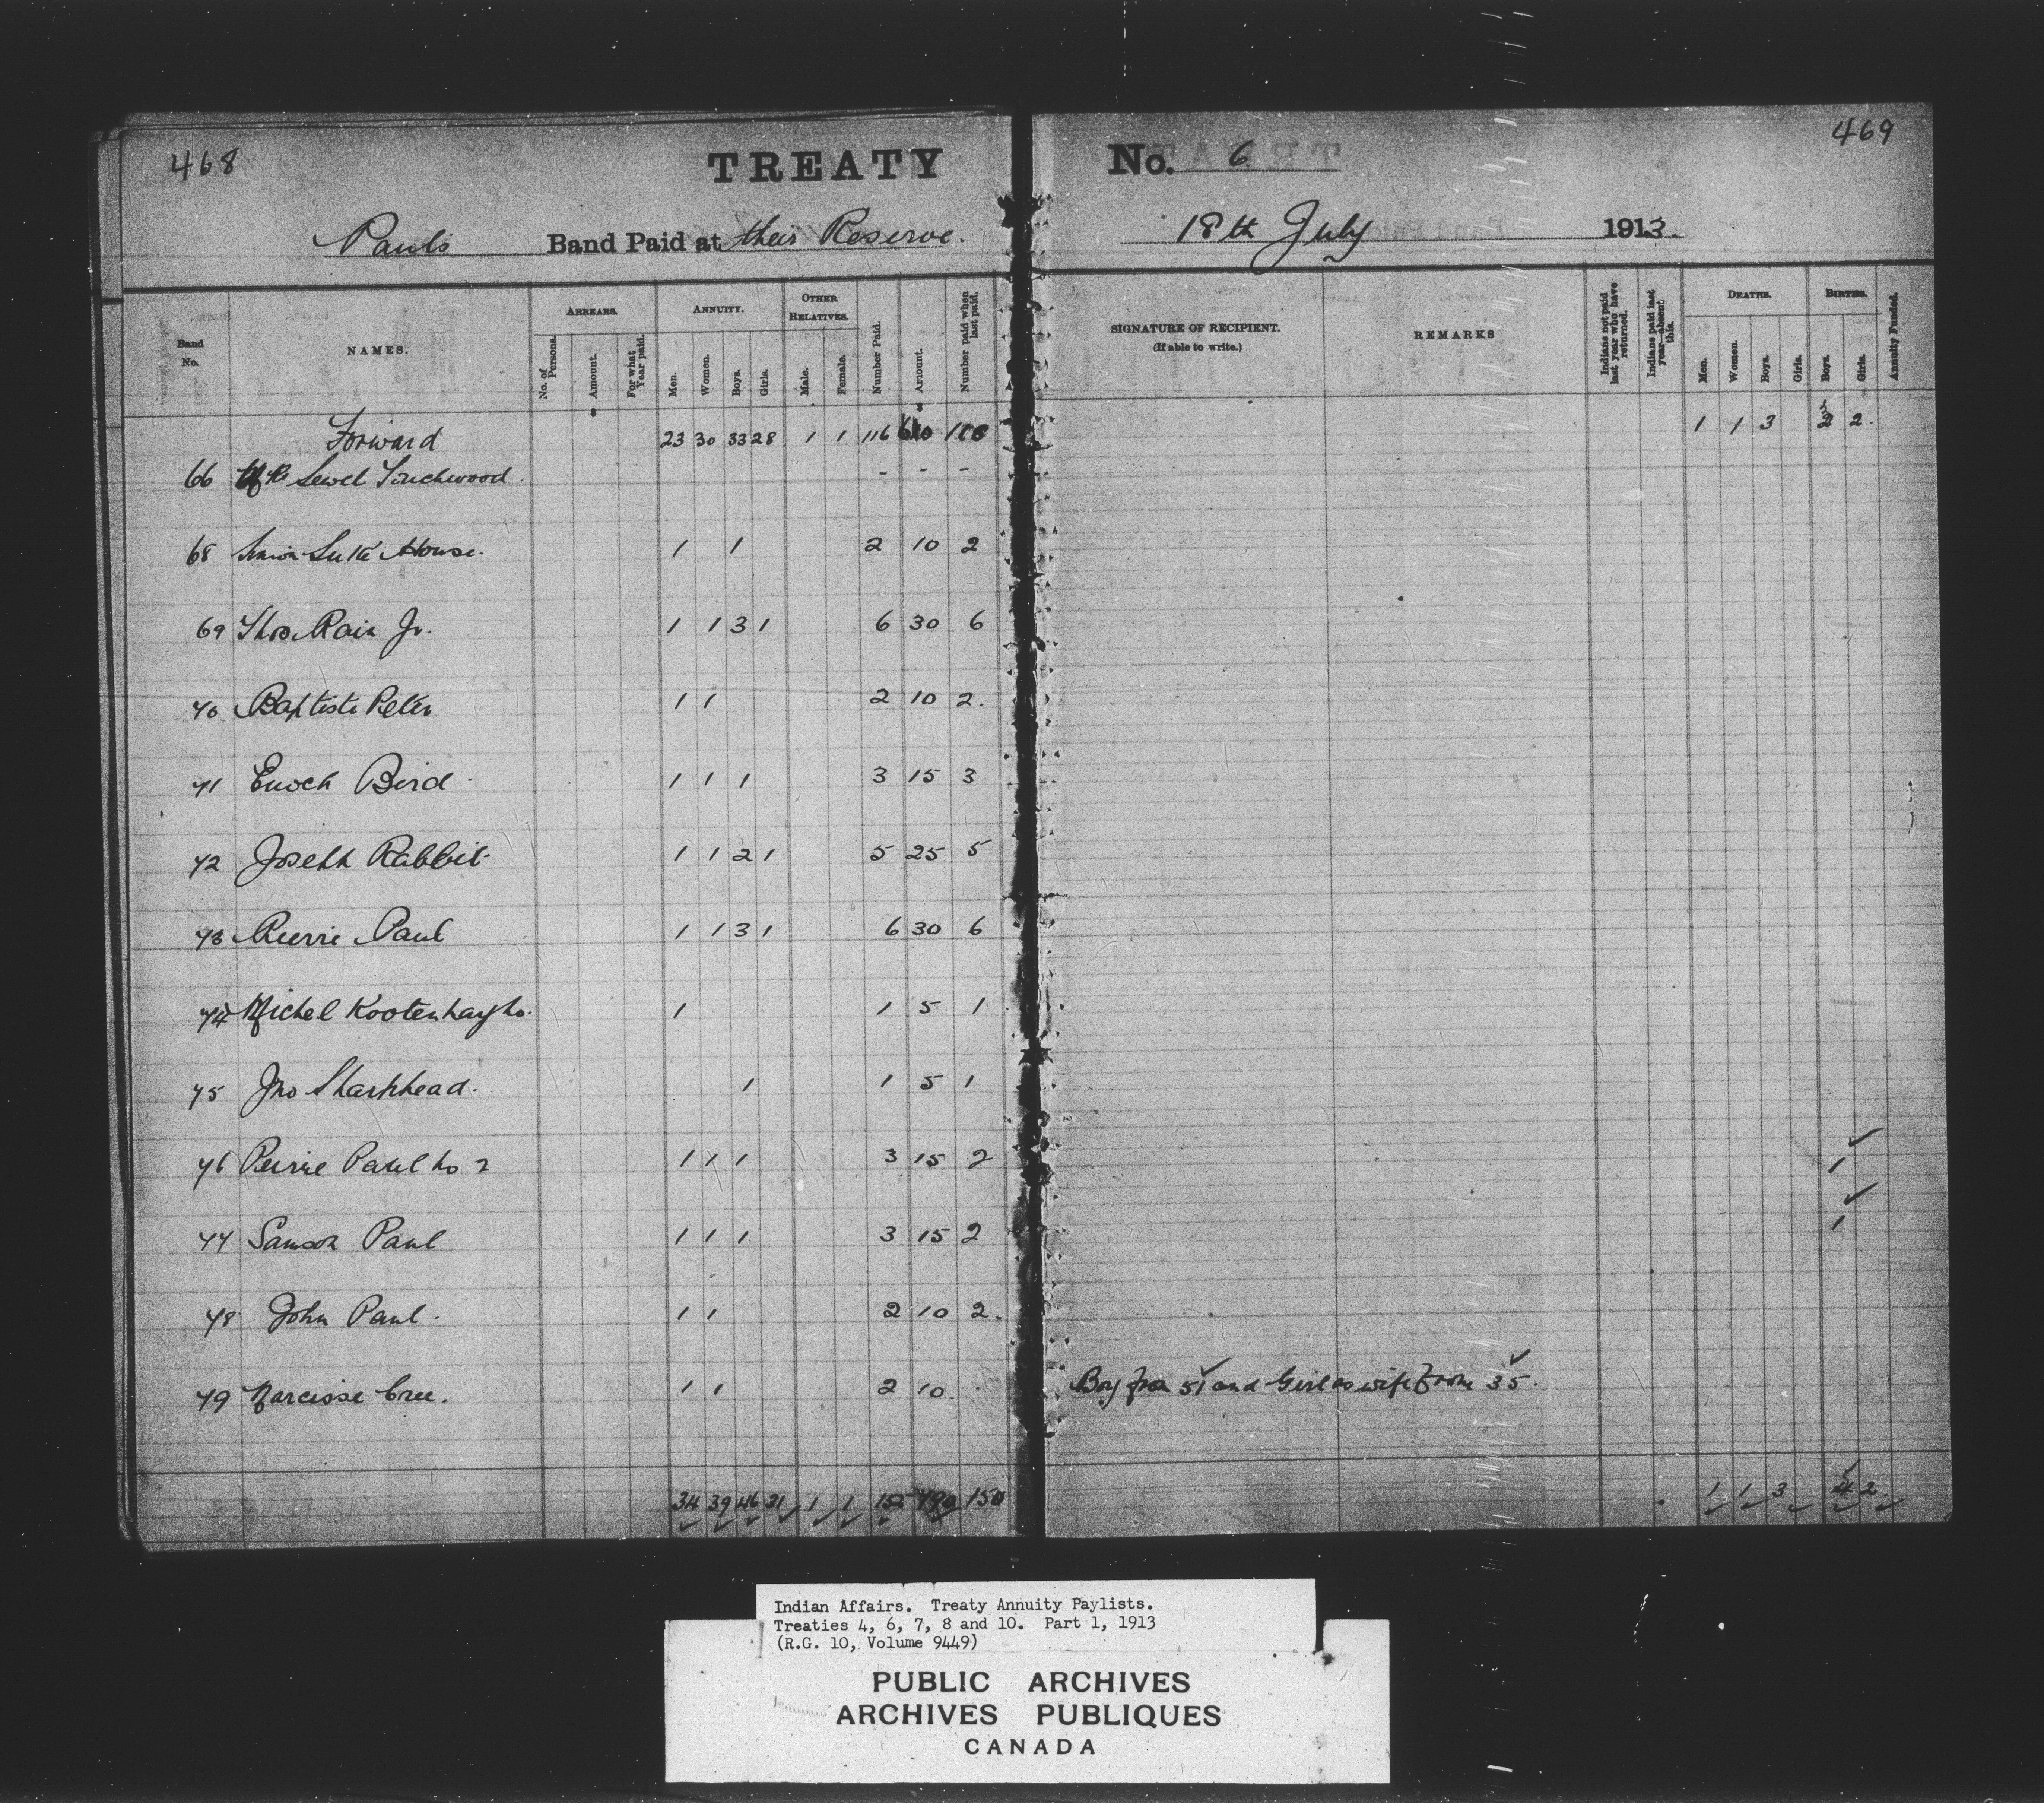 468
TREATY No. 6
469
Pauls Band Paid at their Reserve. 18th July 1913.
Band No. NAMES. ARREARS. ANNUITY. OTHER RELATIVES. Number Paid. Amount. Number paid when last paid. SIGNATURE OF RECIPIENT. (If able to write.) REMARKS Indians not paid last year who have returned. Indians paid last year—absent this. DEATHS. BIRTHS. Annuity Funded.
No. of Persons. Amount. For what Year paid. Men. Women. Boys. Girls. Male. Female. Men. Women. Boys. Girls. Boys. Girls.
Forward 23 30 33 28 1 1 116 1 1 3 2 2.
66 - - -
68 House. 1 1 2 10 2
69 Thos Rain Jr. 1 1 3 1 6 30 6
70 Baptiste Peter 1 1 2 10 2.
71 Enoch Bird 1 1 1 3 15 3
72 Joseph Rabbit 1 1 2 1 5 25 5
73 Pierre Paul 1 1 3 1 6 30 6
74 Michel 1 1 5 1
75 Jno Sharphead. 1 1 5 1
76 Peirre Paul No 2 1 1 1 3 15 2 1 ✓
77 Samson Paul 1 1 1 3 15 2 1 ✓
78 John Paul. 1 1 2 10 2.
79 Narcisse Cree. 1 1 2 10. Boy from 51 ✓ and Girl as wife from 35. ✓
34 39 46 31 1 1 152 790 150 1 1 3 4 2
Indian Affairs. Treaty Annuity Paylists.
Treaties 4, 6, 7, 8 and 10. Part 1, 1913
(R.G. 10, Volume 9449)
PUBLIC ARCHIVES
ARCHIVES PUBLIQUES
CANADA